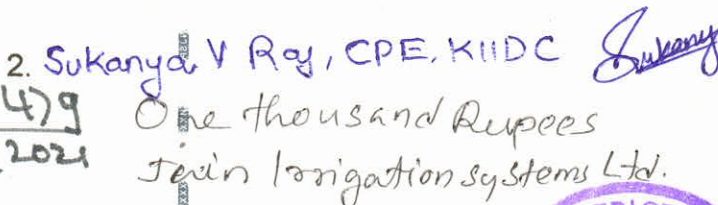 2. Sukanya V Roy, CPE, KIIDC Sukany
479 One thousand Rupees
2021 Jain Irrigation systems Ltd.